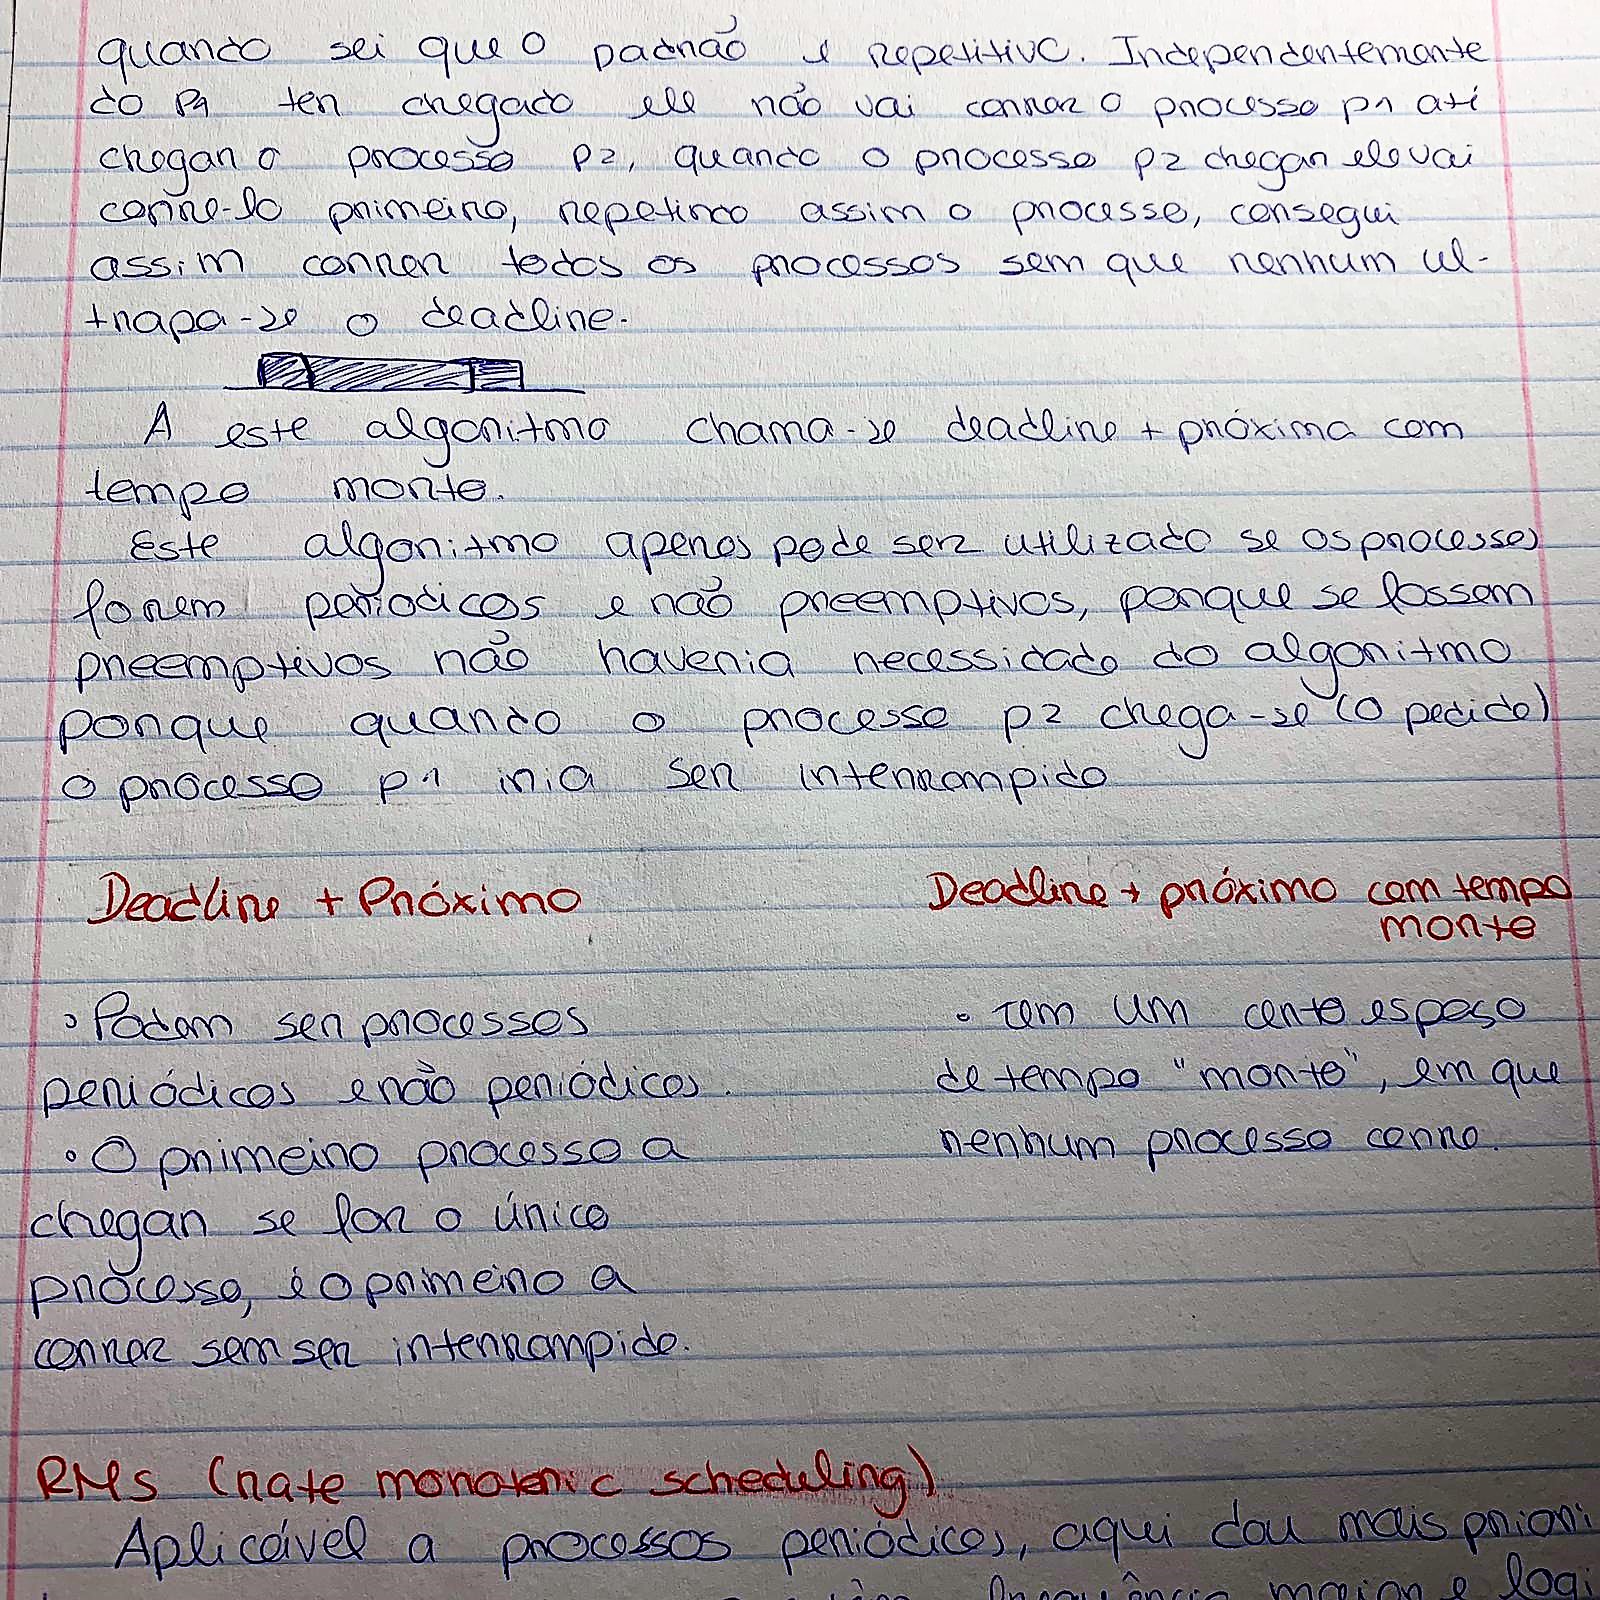 quando sei que o padrão é repetitivo. Independentemente
do P1 ter chegado ele não vai correr o processo p1 até
chegar o processo p2, quando o processo p2 chegar ele vai
corre-lo primeiro, repetindo assim o processo, consegui
assim correr todos os processos sem que nenhum ul-
trapa-se o deadline.
A este algoritmo chama-se deadline + próxima com
tempo morto.
Este algoritmo apenas pode ser utilizado se os processos
forem periodicos e não preemptivos, porque se fossem
preemptivos não haveria necessidade do algoritmo
porque quando o processo p2 chega-se (o pedido)
o processo p1 iria ser interrompido
Deadline + Próximo
Deadline + próximo com tempo
morto
• Podem ser processos
periódicos e não periódicos.
• O primeiro processo a
chegar se for o único
processo, é o primeiro a
correr sem ser interrompido.
• Tem um certo espaço
de tempo "morto", em que
nenhum processo corre.
RMS (rate monotonic scheduling)
Aplicável a processos periódicos, aqui dou mais priori
frequência maior e logi